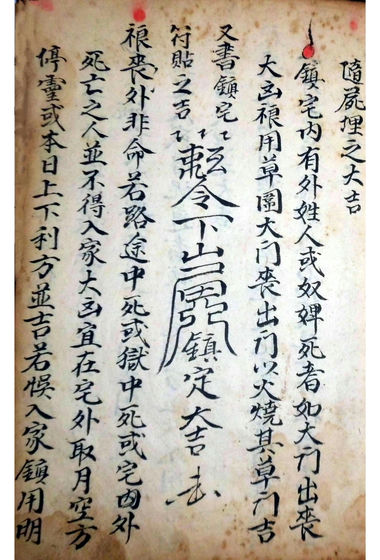 隨屍埋之大吉
鎮宅内有外姓人或奴婢死者如大门出丧
大凶禳用草圈大门丧出门以火燒其草门吉
又書鎮宅
符貼之吉
令下
鎮定大吉
禳丧外非命若路途中死或獄中死或宅内外
死亡之人並不得入家大凶宜在宅外取月空方
停靈或本日上下利方並吉若悮入家鎮用明